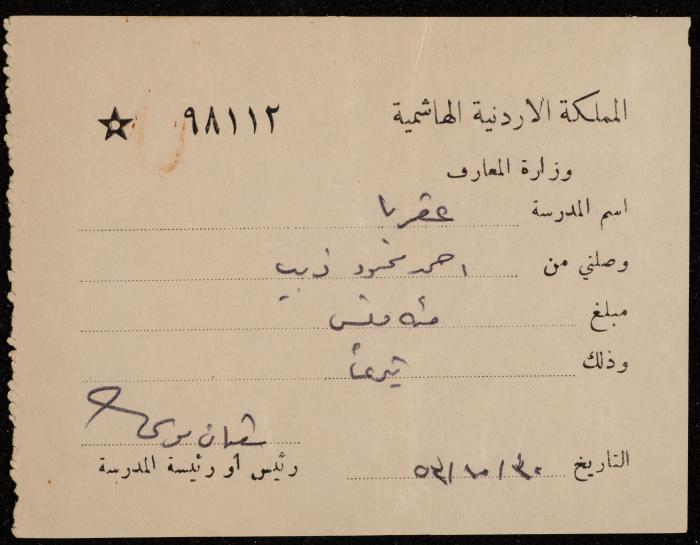 المملكة الاردنية الهاشمية ٩٨١١٢
وزارة المعارف
اسم المدرسة عقربا
وصلني من احمد محمود ذيب
مبلغ مئة فلس
وذلك تبرعاً
شعبان موسى
رئيس أو رئيسة المدرسة
التاريخ ٣٠/١٠/٥٣